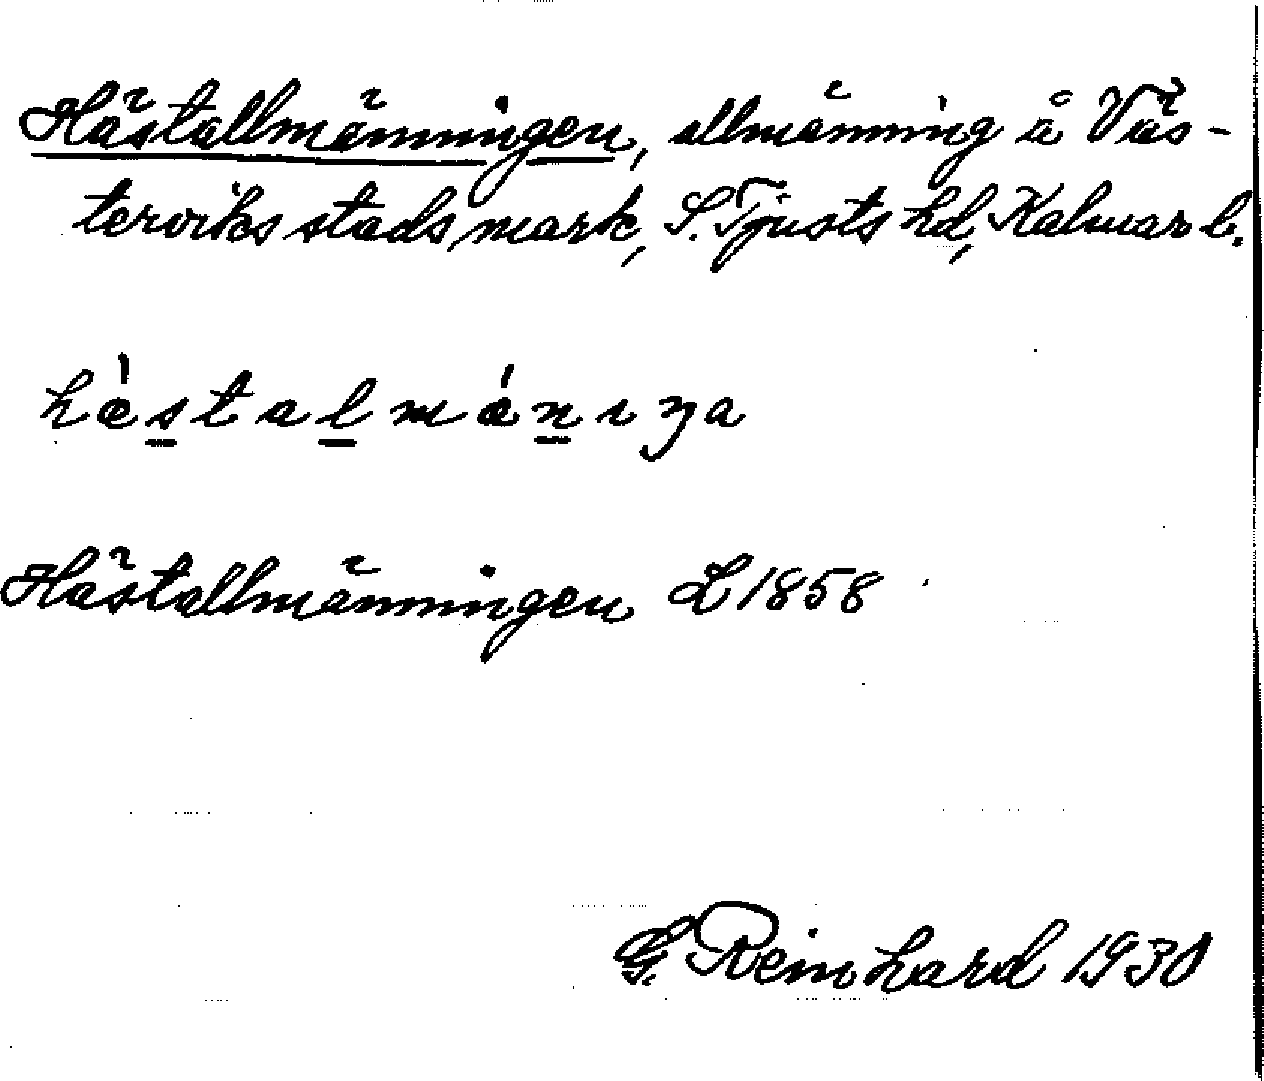 Hästallmänningen, allmänning å Väs-
terviks stads mark, S. Tjusts hd, Kalmar l.
hæ̀stalmǽnıŋa
Hästallmänningen L 1858
G. Reinhard 1930